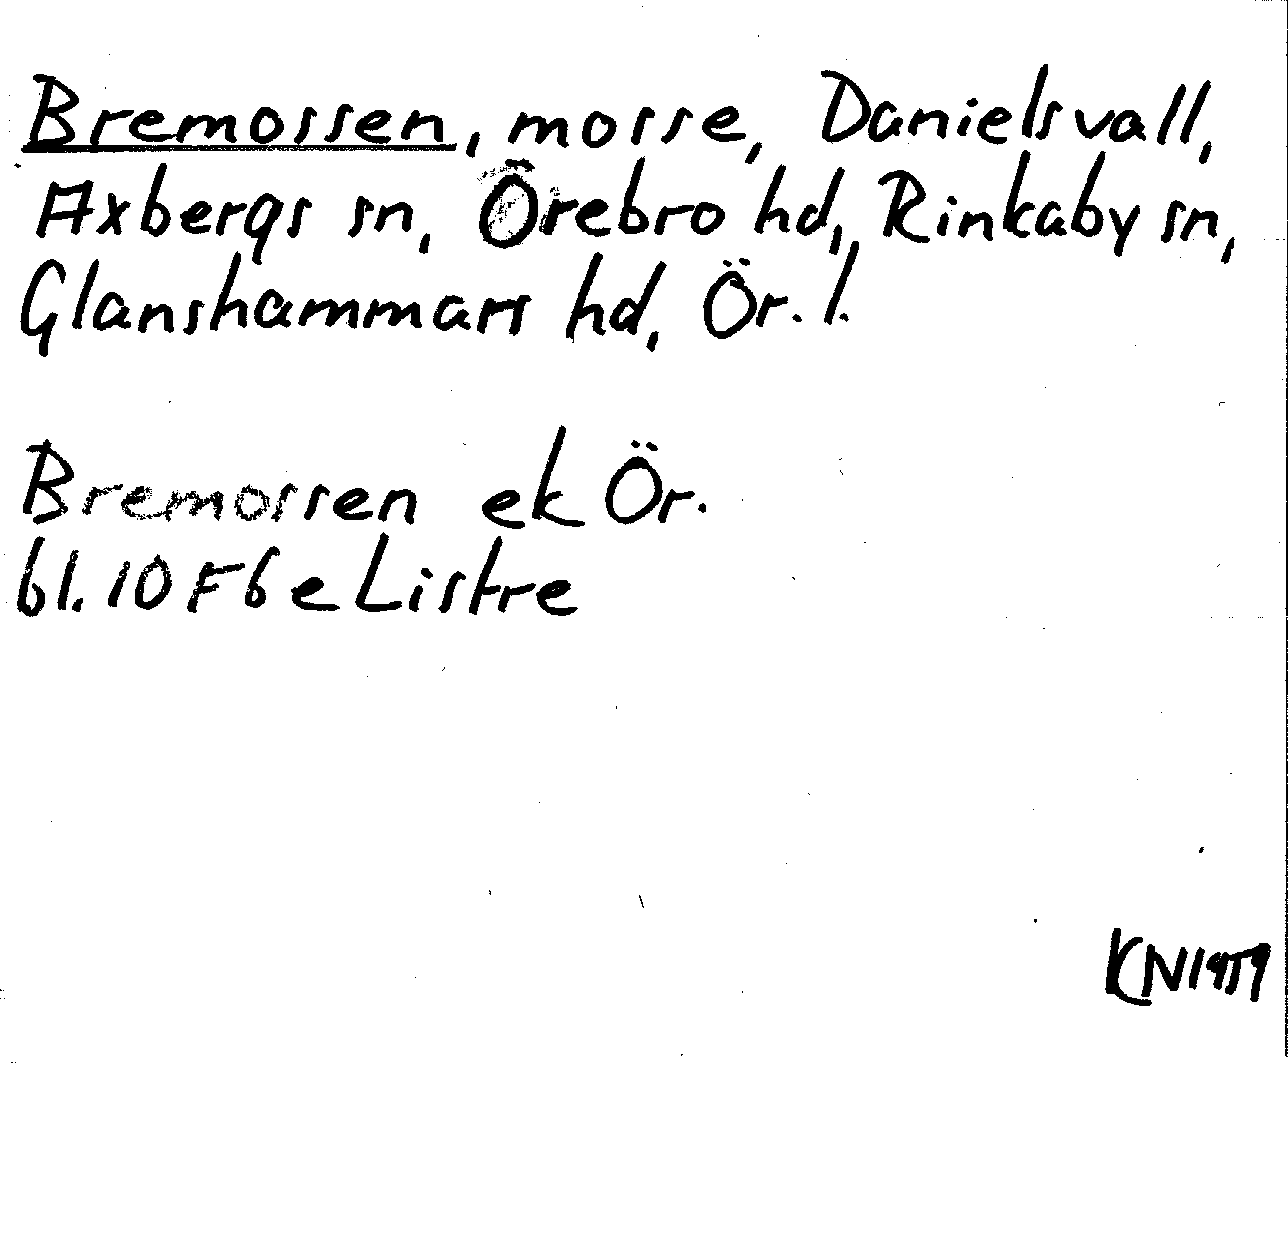 Bremossen, mosse, Danielsvall,
Axbergs sn, Örebro hd, Rinkaby sn,
Glanshammars hd, Ör. l.
Bremossen ek Ör.
bl. 10 F 6 e Listre
KN 1959